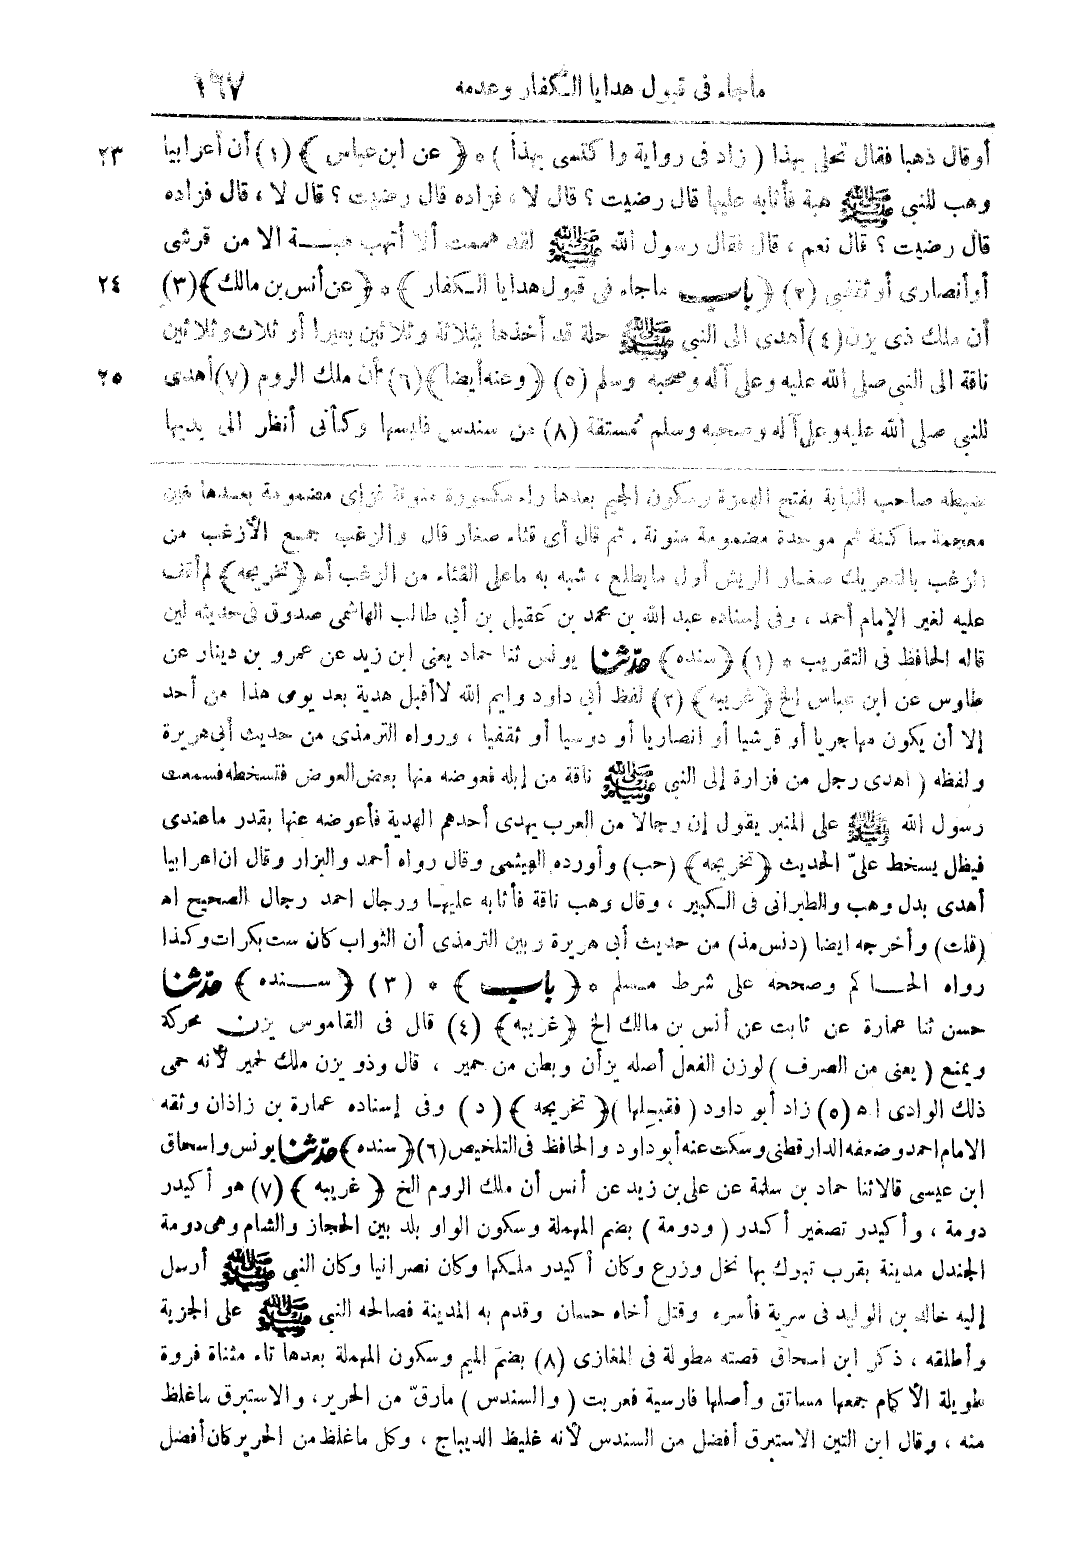 ماجاء فى قبول هدايا الكفار وعدمه ١٦٧
أو قال ذهبا فقال تحلى بهذا ( زاد فى رواية واكتسى بهذا ) * ﴿ عن ابن عباس ﴾ (١) أن أعرابيا ٢٣
وهب للنبى ﷺ هبة فأثابه عليها قال رضيت ؟ قال لا ، فزاده قال رضيت ؟ قال لا ، قال فزاده
قال رضيت ؟ قال نعم ، قال فقال رسول الله ﷺ لقد هممت ألا أتهب هبة الا من قرشى
أو أنصارى أو ثقفى (٢) ﴿ باب ماجاء فى قبول هدايا الكفار ﴾ * ﴿ عن أنس بن مالك ﴾ (٣) ٢٤
أن ملك ذى يزن (٤) أهدى الى النبى ﷺ حلة قد أخذها بثلاثة وثلاثين بعيرا أو ثلاث وثلاثين
ناقة الى النبى صلى الله عليه وعلى آله وصحبه وسلم (٥) ﴿ وعنه أيضا ﴾ (٦) أن ملك الروم (٧) أهدى ٢٥
للنبى صلى الله عليه وعلى آله وصحبه وسلم مُستقة (٨) من سندس فلبسها وكأنى أنظر الى يديها
ضبطه صاحب النهاية بفتح الهمزة وسكون الجيم بعدها راء مكسورة منونة فزاى مضمومة بعدها غين
معجمة ساكنة ثم موحدة مضمومة منونة . ثم قال أى قثاء صغار قال والزغب جمع الأزغب من
الزغب بالتحريك صغار الريش أول مايطلع ، شبه به ماعلى القثاء من الزغب اه ﴿ تخريجه ﴾ لم أقف
عليه لغير الإمام أحمد ، وفى إسناده عبد الله بن محمد بن عقيل بن أبي طالب الهاشمى صدوق فى حديثه لين
قاله الحافظ فى التقريب * (١) ﴿ سنده ﴾ حدّثنا يونس ثنا حماد يعنى ابن زيد عن عمرو بن دينار عن
طاوس عن ابن عباس الخ ﴿ غريبه ﴾ (٢) لفظ أبى داود وايم الله لا أقبل هدية بعد يومى هذا من أحد
إلا أن يكون مهاجريا أو قرشيا أو انصاريا أو دوسيا أو ثقفيا ، ورواه الترمذى من حديث أبى هريرة
ولفظه ( أهدى رجل من فزارة إلى النبى ﷺ ناقة من إبله فعوضه منها بعض العوض فتسخطه فسمعت
رسول الله ﷺ على المنبر يقول إن رجالا من العرب يهدى أحدهم الهدية فأعوضه عنها بقدر ماعندى
فيظل يسخط علىّ الحديث ﴿ تخريجه ﴾ (حب) وأورده الهيثمى وقال رواه أحمد والبزار وقال ان اعرابيا
أهدى بدل وهب والطبرانى فى الكبير ، وقال وهب ناقة فأثابه عليها ورجال احمد رجال الصحيح اه
(قلت) وأخرجه ايضا (د نس مذ) من حديث أبى هريرة وبين الترمذى أن الثواب كان ست بكرات وكذا
رواه الحاكم وصححه على شرط مسلم * ﴿ باب ﴾ * (٣) ﴿ سنده ﴾ حدّثنا
حسن ثنا عمارة عن ثابت عن أنس بن مالك الخ ﴿ غريبه ﴾ (٤) قال فى القاموس يزن محركة
ويمنع ( يعنى من الصرف ) لوزن الفعل أصله يزأن وبطن من حمير ، قال وذو يزن ملك لحمير لأنه حمى
ذلك الوادى اه (٥) زاد أبو داود ( فقبلها ) ﴿ تخريجه ﴾ ( د ) وفى إسناده عمارة بن زاذان وثقه
الامام احمد وضعفه الدارقطنى وسكت عنه أبو داود والحافظ فى التلخيص (٦) ﴿ سنده ﴾ حدّثنا يونس واسحاق
ابن عيسى قالا ثنا حماد بن سلمة عن على بن زيد عن أنس أن ملك الروم الخ ﴿ غريبه ﴾ (٧) هو أكيدر
دومة ، وأكيدر تصغير أكدر ( ودومة ) بضم المهملة وسكون الواو بلد بين الحجاز والشام وهى دومة
الجندل مدينة بقرب تبوك بها نخل وزرع وكان أكيدر ملكها وكان نصرانيا وكان النبى ﷺ أرسل
إليه خالد بن الوليد فى سرية فأسره وقتل أخاه حسان وقدم به المدينة فصالحه النبى ﷺ على الجزية
وأطلقه ، ذكر ابن اسحاق قصته مطولة فى المغازى (٨) بضم الميم وسكون المهملة بعدها تاء مثناة فروة
طويلة الأكمام جمعها مساتق وأصلها فارسية فعربت ( والسندس ) مارقّ من الحرير ، والاستبرق ماغلظ
منه ، وقال ابن التين الاستبرق أفضل من السندس لأنه غليظ الديباج ، وكل ماغلظ من الحرير كان أفضل